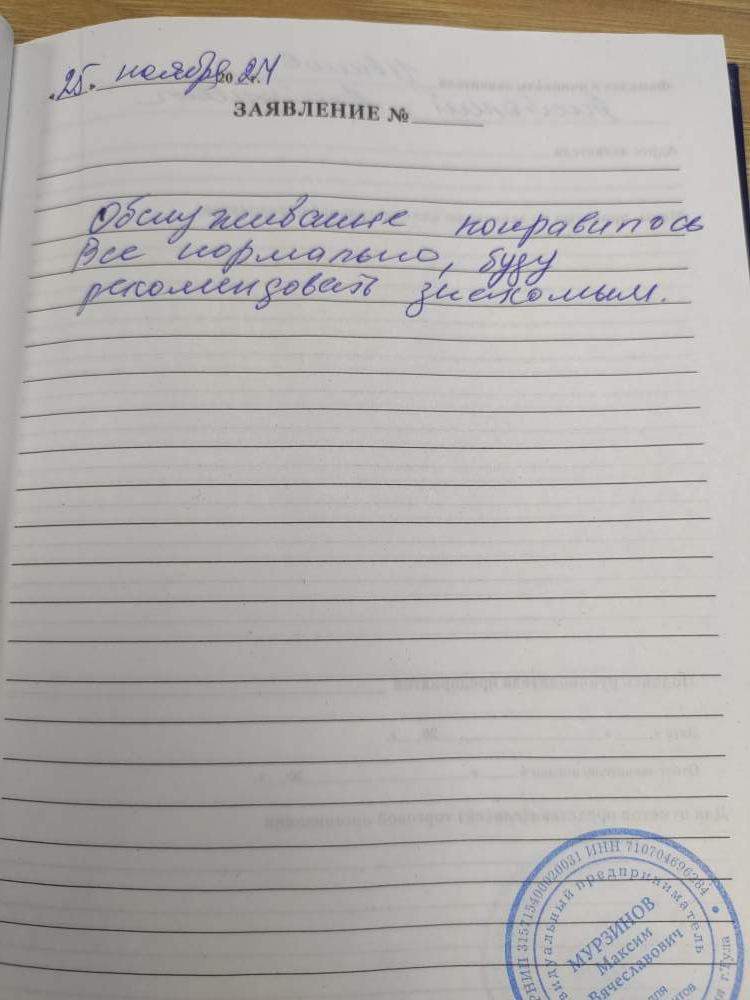 «25» ноября 2024 г.
ЗАЯВЛЕНИЕ №
Обслуживание понравилось
Все нормально, буду
рекомендовать знакомым.
РНИП 315715400020031 ИНН 710704696284
видуальный предприниматель
МУРЗИНОВ
Максим
Вячеславович
г.Тула